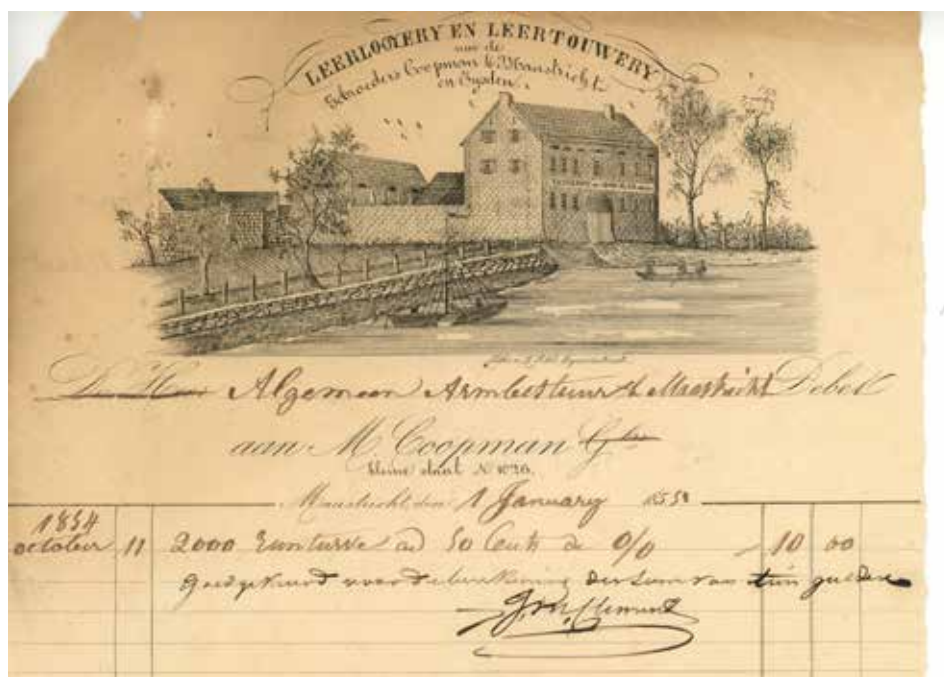 LEERLOOYERY EN LEERTOUWERY
van de
Gebroeders Coopman te Maastricht
en Eysden.
De Heer Algemeen Armbestuur te Maastricht Debet
aan M. Coopman Gbr
kleine staat No 1026.
Maastricht, den 1 January 1855
1854
october 11 2000 Runturve ad 50 Cents de 0/0 10 00
Goedgekeurd voor de berekening der som van tien gulden